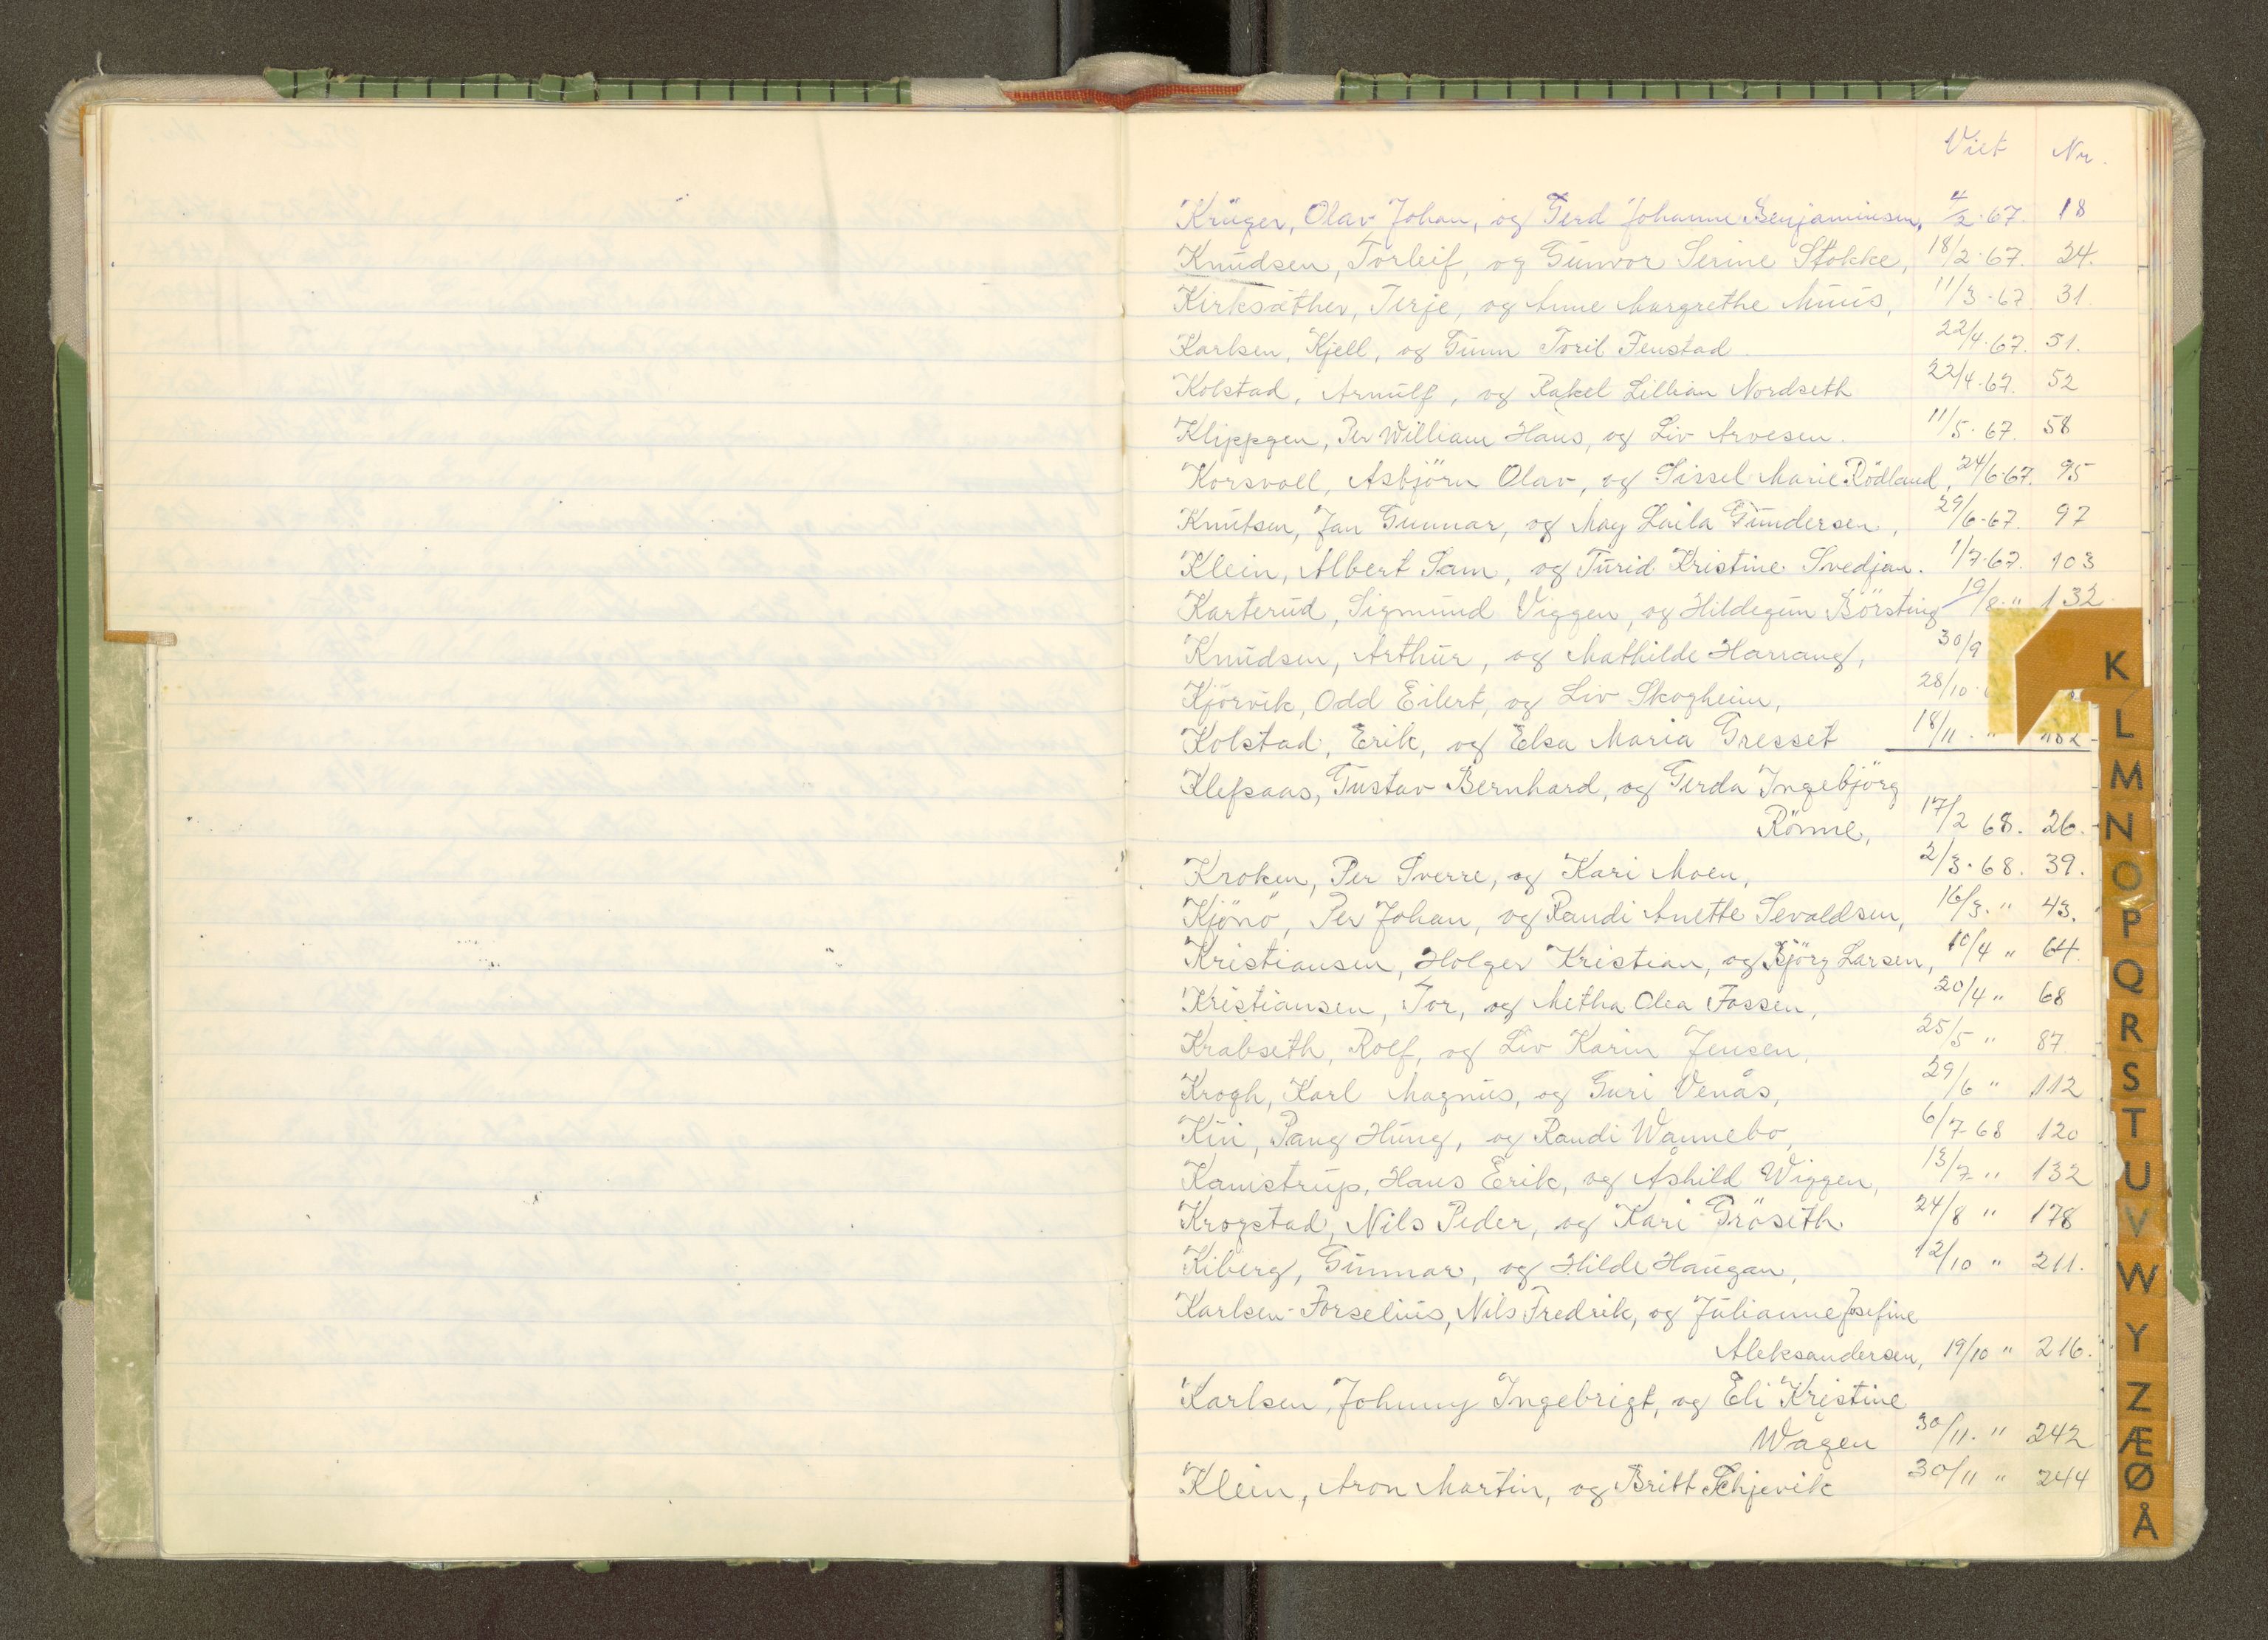 Viet Nr.
Krüger, Olav Johan, og Gerd Johanne Benjaminsen, 4/2.67. 18
Knudsen, Torleif, og Gunvor Serine Stokke, 18/2.67. 24.
Kirksæther, Terje, og Anne Margrethe Muus, 11/3.67 31.
Karlsen, Kjell, og Gunn Toril Fenstad 22/4.67. 51.
Kolstad, Arnulf, og Rakel Lillian Nordseth 22/4.67. 52
Klippgen, Per William Hans, og Liv Arvesen. 11/5.67. 58
Korsvoll, Asbjörn Olav, og Sissel Marie Rödland, 24/6.67. 95
Knutsen, Jan Gunnar, og May Laila Gundersen, 29/6.67. 97
Klein, Albert Sam, og Turid Kristine Svedjan. 1/7.67. 103
Karterud, Sigmund Viggen, og Hildegun Börsting 19/8. " 132
Knudsen, Arthur, og Mathilde Harrang, 30/9
Kjörvik, Odd Eilert, og Liv Skogheim, 28/10.
Kolstad, Erik, og Elsa Maria Gresset 18/11. " 182
Klefsaas, Gustav Bernhard, og Gerda Ingebjörg
Rönne, 17/2 68. 26.
Kroken, Per Sverre, og Kari Moen, 2/3.68. 39.
Kjönö, Per Johan, og Randi Anette Sevaldsen, 16/3. " 43.
Kristiansen, Holger Kristian, og Björg Larsen, 10/4 " 64.
Kristiansen, Tor, og Metha Olea Fossen, 20/4 " 68
Kråbseth, Rolf, og Liv Karin Jensen, 25/5 " 87
Krogh, Karl Magnus, og Guri Venås, 29/6 " 112
Kui, Pang Hung, og Randi Wannebo, 6/7 68 120
Kamstrup, Hans Erik, og Åshild Wiggen, 13/7 " 132
Krogstad, Nils Peder, og Kari Gröseth 24/8 " 178
Kiberg, Gunnar, og Hilde Haugan, 12/10 " 211.
Karlsen-Forselius, Nils Fredrik, og Julianne Josefine
Aleksandersen, 19/10 " 216.
Karlsen, Johnny Ingebrigt, og Eli Kristine
Wågen 30/11. " 242
Klein, Aron Martin, og Britt Schjevik 30/11 " 244
K
L
M
N
O
P
Q
R
S
T
U
V
W
Y
Z
Æ
Ø
Å